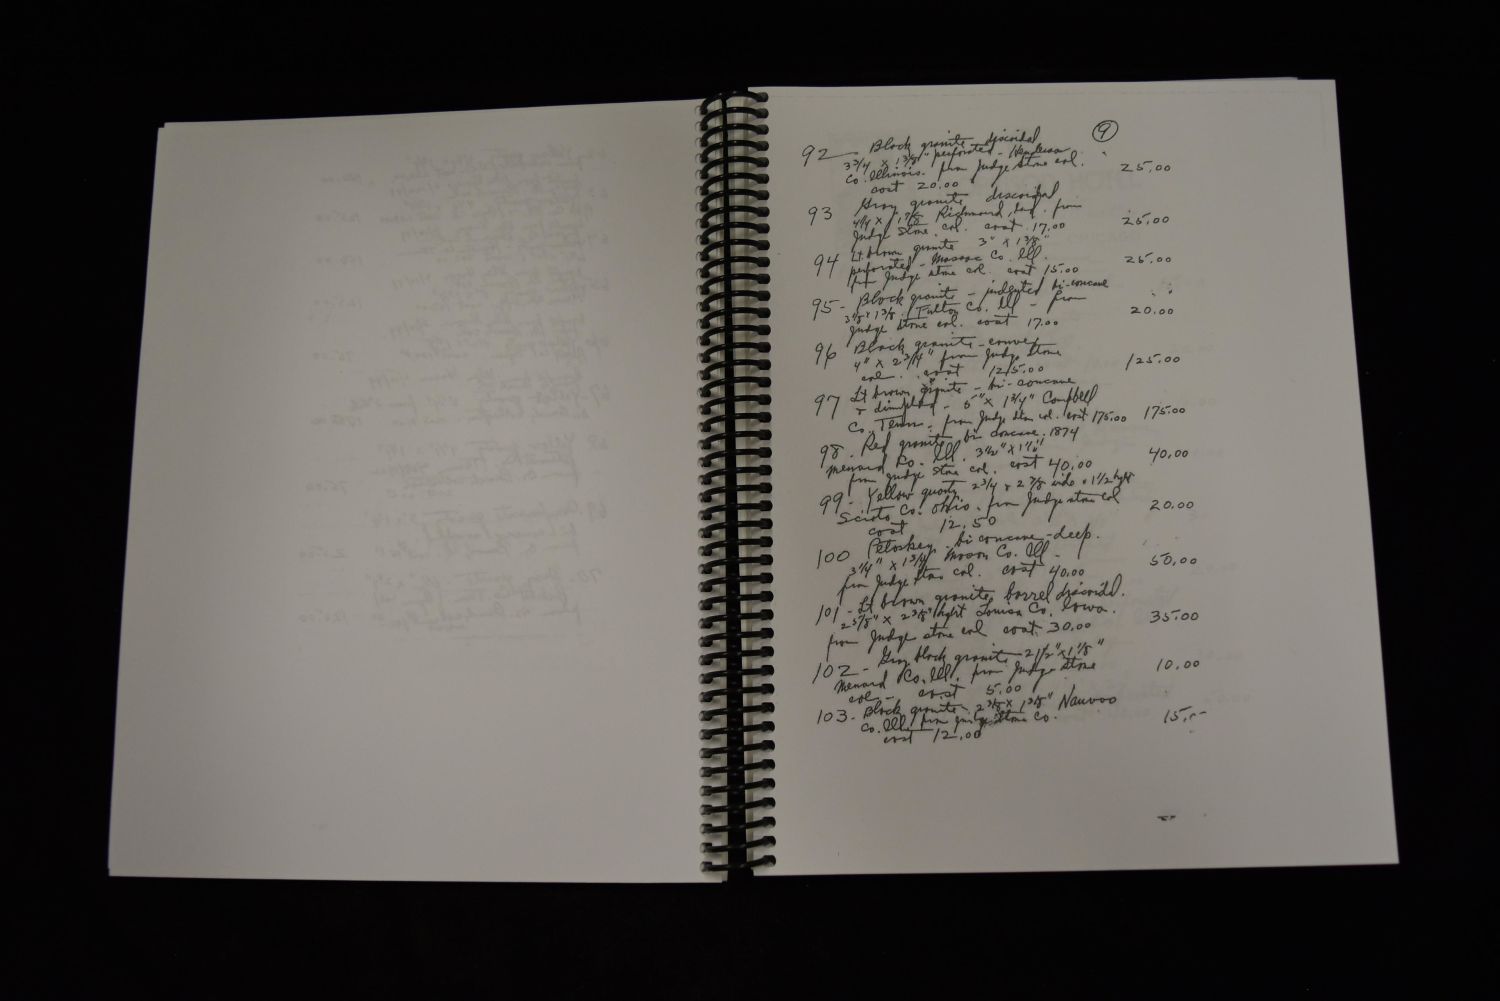 9
92 - Black granite discoidal
3 3/4 x 1 3/8" perforated - Henderson
Co. Illinois. from Judge Stone col.
cost 20.00 25.00
93 Gray granite discoidal
Richmond, Ind. from
Judge Stone. col. cost 17.00 25.00
94 Lt. brown granite 3" x 1 3/8"
perforated - Massac Co. Ill.
from Judge Stone col. cost 15.00 25.00
95 - Black granite - bi-concave
3 1/8 x 1 3/8. Fulton Co. Ill - from
Judge Stone col. cost 17.00 20.00
96 Black granite - convex
4" x 2 3/4" from Judge Stone
col. cost 125.00 125.00
97 Lt brown granite - bi-concave
& dimpled - 5" x 1 3/4" Campbell
Co. Tenn. from Judge Stone col. cost 175.00 175.00
98. Red granite, bi concave. 1874
Menard Co. Ill. 3 1/2" x
from Judge Stone col. cost 40.00 40.00
99 - Yellow quartz 2 3/4 x 2 3/8 wide x 1 1/2 hight
Scioto Co. Ohio. from Judge Stone col
cost 12.50 20.00
100 Petoskey - bi concave - deep.
3 1/4" x 1 3/4 Mason Co. Ill -
from Judge Stone col. cost 40.00 50.00
101 - Lt brown granite barrel discoidal.
2 5/8" x 2 3/8" hight Louisa Co. Iowa.
from Judge Stone col cost 30.00 35.00
102 - Gray black granite 2 1/2" x 1 1/8"
Menard Co. Ill. from Judge Stone
col - cost 5.00 10.00
103. Black granite. 2 3/8 x 1 3/8" Nauvoo
Co. Ill. from Judge Stone Co.
cost 12.00 15.--